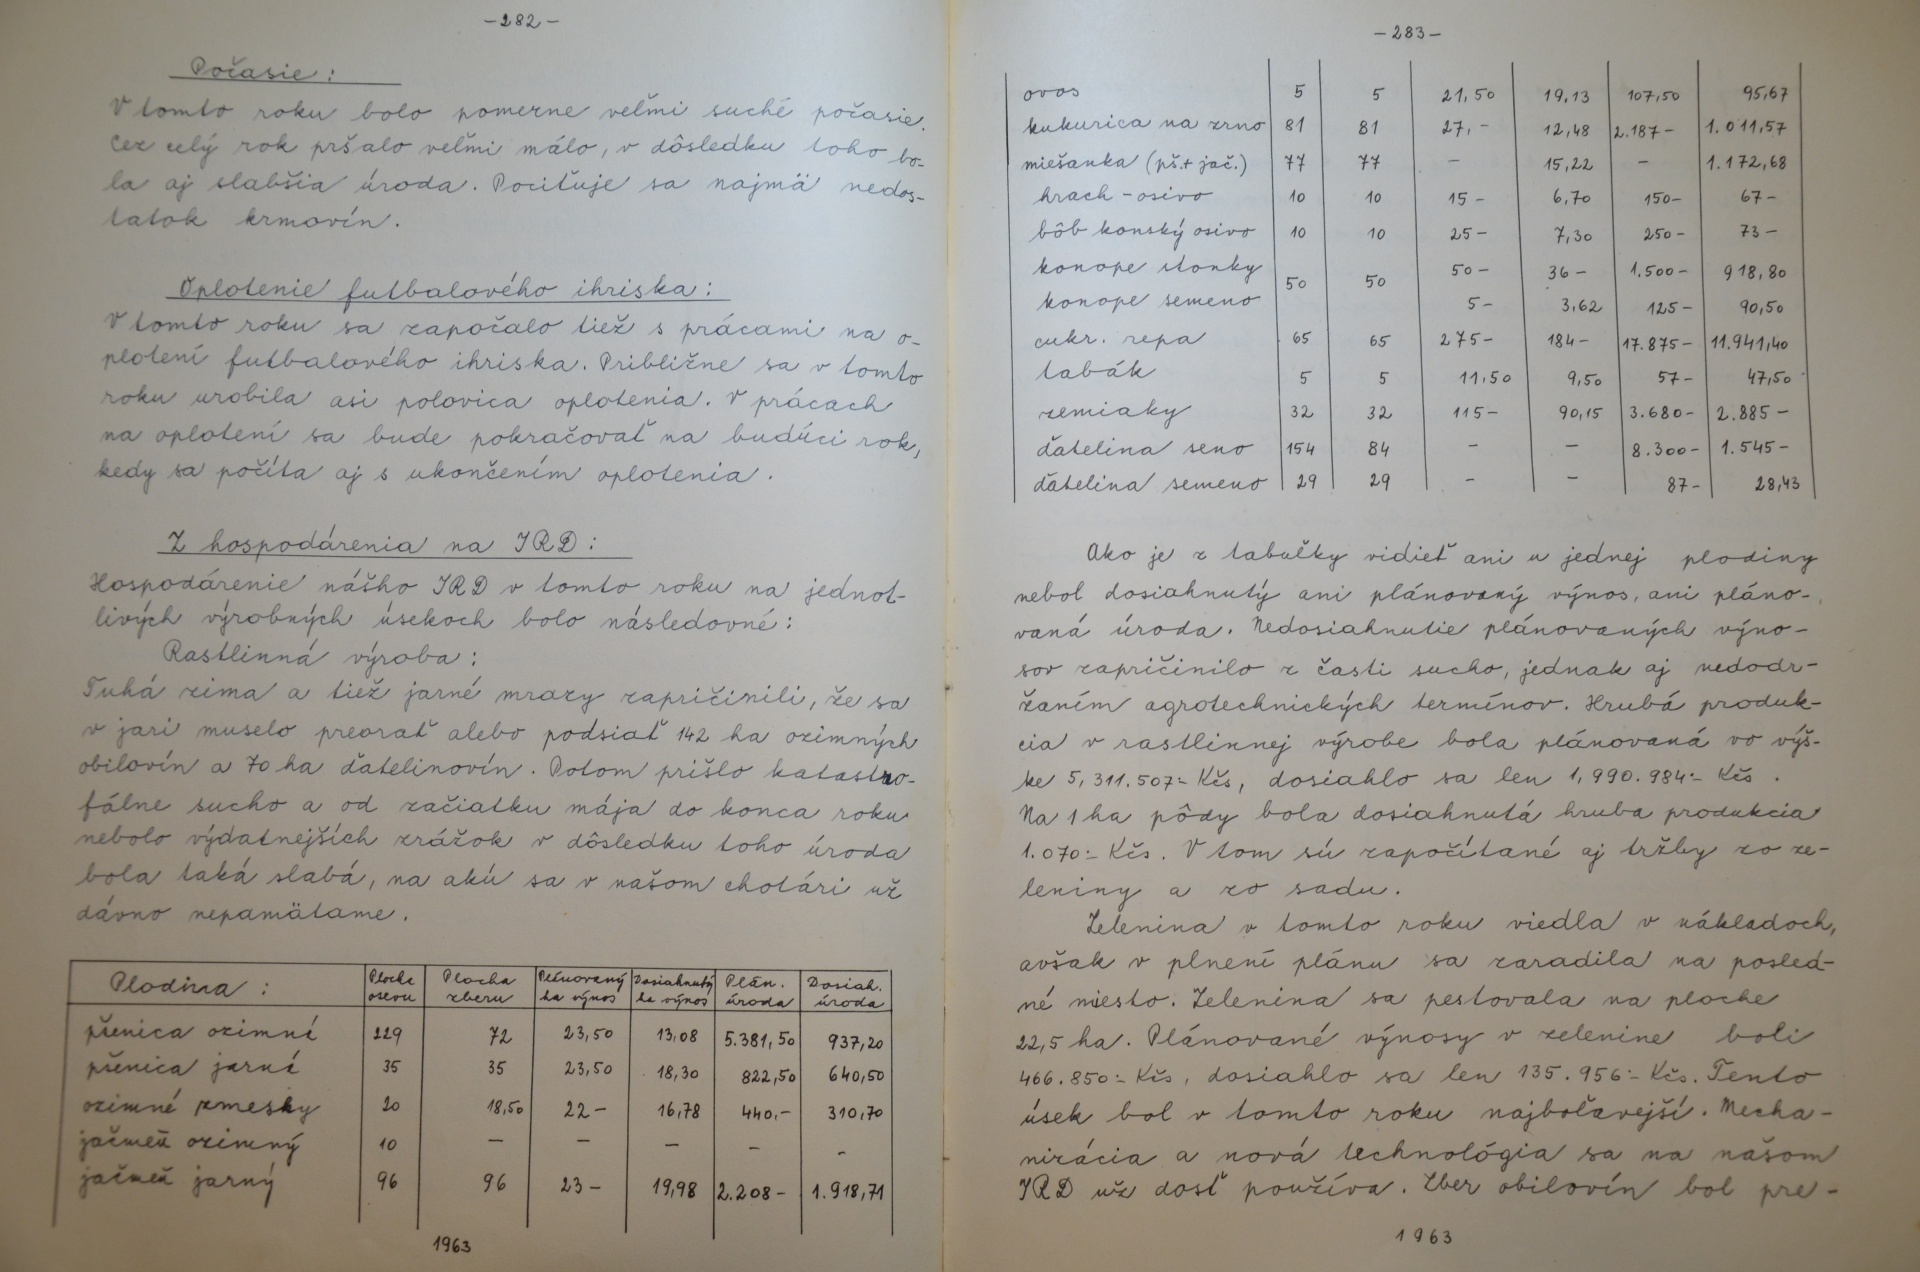 -282-
Počasie:
V tomto roku bolo pomerne veľmi suché počasie.
Cez celý rok pršalo veľmi málo, v dôsledku toho bo-
la aj slabšia úroda. Pociťuje sa najmä nedos-
tatok krmovín.
Oplotenie futbalového ihriska:
V tomto roku sa započalo tiež s prácami na o-
plotení futbalového ihriska. Približne sa v tomto
roku urobila asi polovica oplotenia. V prácach
na oplotení sa bude pokračovať na budúci rok,
kedy sa počíta aj s ukončením oplotenia.
Z hospodárenia na JRD:
Hospodárenie nášho JRD v tomto roku na jednot-
livých výrobných úsekoch bolo následovné:
Rastlinná výroba:
Tuhá zima a tiež jarné mrazy zapričinili, že sa
v jari muselo preorať alebo podsiať 142 ha ozimných
obilovín a 70 ha ďatelinovín. Potom prišlo katastro-
fálne sucho a od začiatku mája do konca roku
nebolo výdatnejších zrážok v dôsledku toho úroda
bola taká slabá, na akú sa v našom chotári už
dávno nepamätame.
Plodina: Plocha osevu Plocha zberu Plánovaný ha výnos Dosiahnutý ha výnos Plán. úroda Dosiah. úroda
pšenica ozimné 229 72 23,50 13,08 5.381,50 937,20
pšenica jarné 35 35 23,50 18,30 822,50 640,50
ozimné zmesky 20 18,50 22- 16,78 440,- 310,70
jačmeň ozimný 10 - - - - -
jačmeň jarný 96 96 23- 19,98 2.208- 1.918,71
1963
-283-
ovos 5 5 21,50 19,13 107,50 95,67
kukurica na zrno 81 81 27,- 12,48 2.187- 1.011,57
miešanka (pš.+ jač.) 77 77 - 15,22 - 1.172,68
hrach - osivo 10 10 15- 6,70 150- 67-
bôb konský osivo 10 10 25- 7,30 250- 73-
konope stonky 50 50 50- 36- 1.500- 918,80
konope semeno 5- 3,62 125- 90,50
cukr. repa 65 65 275- 184- 17.875- 11.941,40
tabák 5 5 11,50 9,50 57- 47,50
zemiaky 32 32 115- 90,15 3.680- 2.885-
ďatelina seno 154 84 - - 8.300- 1.545-
ďatelina semeno 29 29 - - 87- 28,43
Ako je z tabuľky vidieť ani u jednej plodiny
nebol dosiahnutý ani plánovaný výnos, ani pláno-
vaná úroda. Nedosiahnutie plánovaných výno-
sov zapričinilo z časti sucho, jednak aj nedodr-
žaním agrotechnických termínov. Hrubá produk-
cia v rastlinnej výrobe bola plánovaná vo výš-
ke 5,311.507:- Kčs, dosiahlo sa len 1,990.984:- Kčs.
Na 1 ha pôdy bola dosiahnutá hruba produkcia
1.070:- Kčs. V tom sú započítané aj tržby zo ze-
leniny a zo sadu.
Zelenina v tomto roku viedla v nákladoch,
avšak v plnení plánu sa zaradila na posled-
né miesto. Zelenina sa pestovala na ploche
22,5 ha. Plánované výnosy v zelenine boli
466.850:- Kčs, dosiahlo sa len 135.956:- Kčs. Tento
úsek bol v tomto roku najboľavejší. Mecha-
nizácia a nová technológia sa na našom
JRD už dosť používa. Zber obilovín bol pre-
1963